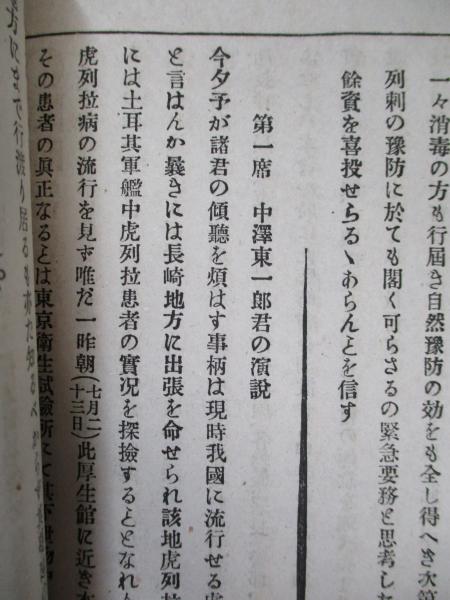 一々消毒の方も行屆き自然豫防の効をも全し得へき次第
列刺の豫防に於ても閣く可らさるの緊急要務と思考し
餘資を喜投せらるゝあらんとを信す
第一席 中澤東一郎君の演説
今夕予が諸君の傾聽を煩はす事柄は現時我國に流行せる虎
と言はんか曩きには長崎地方に出張を命せられ該地虎列拉
には土耳其軍艦中虎列拉患者の實况を探撿するととなれ
虎列拉病の流行を見ず唯だ一昨朝(七月二十三日)此厚生館に近き
その患者の眞正なるとは東京衛生試驗所にて其下
方にまで行渡り居るも亦た知る